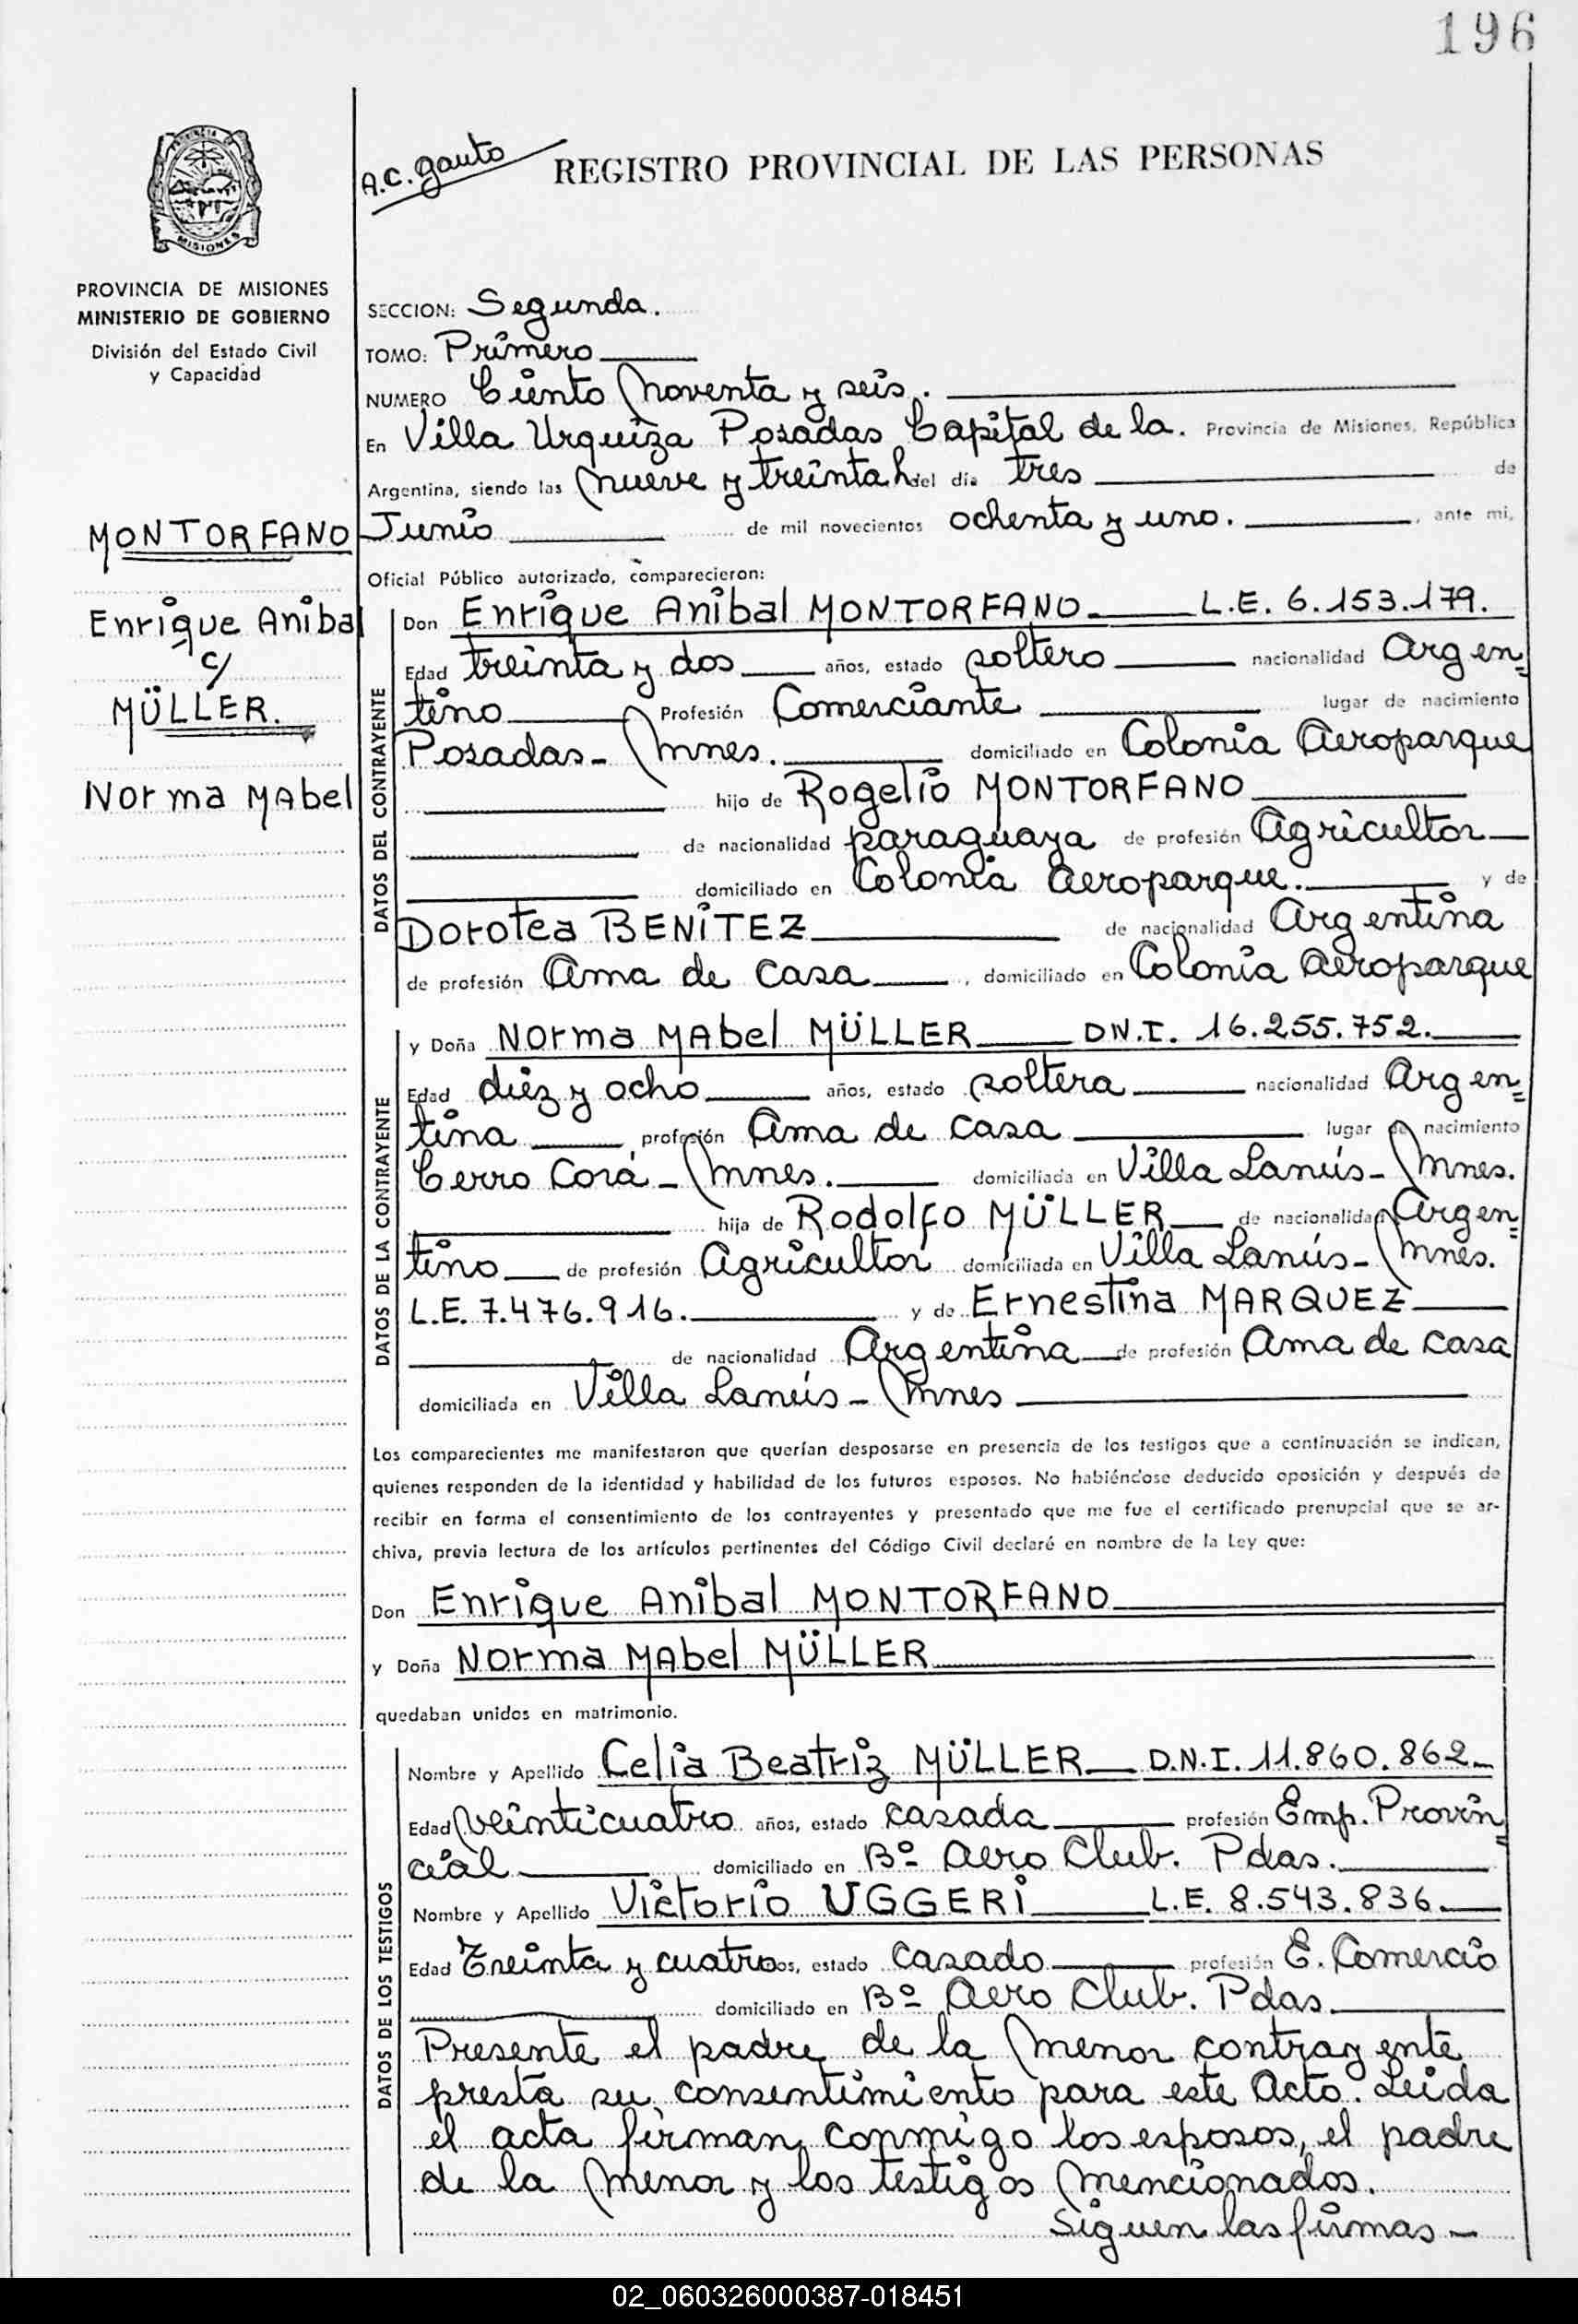 196
PROVINCIA
MISIONES
A.C. Gauto
REGISTRO PROVINCIAL DE LAS PERSONAS
PROVINCIA DE MISIONES
MINISTERIO DE GOBIERNO
División del Estado Civil
y Capacidad
MONTORFANO
Enrique Anibal
c/
MÜLLER.
Norma Mabel
SECCION: Segunda.
TOMO: Primero
NUMERO Ciento noventa y seis.
En Villa Urquiza Posadas Capital de la. Provincia de Misiones, República
Argentina, siendo las nueve y treinta h del día tres de
Junio de mil novecientos ochenta y uno. , ante mi,
Oficial Público autorizado, comparecieron:
DATOS DEL CONTRAYENTE
Don Enrique Anibal MONTORFANO L.E. 6.153.179.
Edad treinta y dos años, estado soltero nacionalidad Argen=
tino Profesión Comerciante lugar de nacimiento
Posadas - Mnes. domiciliado en Colonia Aeroparque
hijo de Rogelio MONTORFANO
de nacionalidad paraguaya de profesión Agricultor
domiciliado en Colonia Aeroparque. y de
Dorotea BENITEZ de nacionalidad Argentina
de profesión Ama de casa , domiciliado en Colonia Aeroparque
DATOS DE LA CONTRAYENTE
y Doña Norma Mabel MÜLLER DN.I. 16.255.752.
Edad diez y ocho años, estado soltera nacionalidad Argen=
tina profesión Ama de casa lugar de nacimiento
Cerro Corá - Mnes. domiciliada en Villa Lanús - Mnes.
hija de Rodolfo MÜLLER de nacionalidad Argen=
tino de profesión Agricultor domiciliada en Villa Lanús - Mnes.
L.E. 7.476.916. y de Ernestina MARQUEZ
de nacionalidad Argentina de profesión Ama de casa
domiciliada en Villa Lanús - Mnes
Los comparecientes me manifestaron que querían desposarse en presencia de los testigos que a continuación se indican,
quienes responden de la identidad y habilidad de los futuros esposos. No habiéndose deducido oposición y después de
recibir en forma el consentimiento de los contrayentes y presentado que me fue el certificado prenupcial que se ar-
chiva, previa lectura de los artículos pertinentes del Código Civil declaré en nombre de la Ley que:
Don Enrique Anibal MONTORFANO
y Doña Norma Mabel MÜLLER
quedaban unidos en matrimonio.
DATOS DE LOS TESTIGOS
Nombre y Apellido Celia Beatriz MÜLLER D.N.I. 11.860.862
Edad veinticuatro años, estado casada profesión Emp. Provin=
cial domiciliado en Bº Aero Club. Pdas.
Nombre y Apellido Victorio UGGERI L.E. 8.543.836.
Edad Treinta y cuatro os, estado casado profesión E. Comercio
domiciliado en Bº Aero Club. Pdas.
Presente el padre de la menor contrayente
presta su consentimiento para este Acto. Leida
el acta firman conmigo los esposos, el padre
de la menor y los testigos mencionados.
Siguen las firmas -
02_060326000387-018451